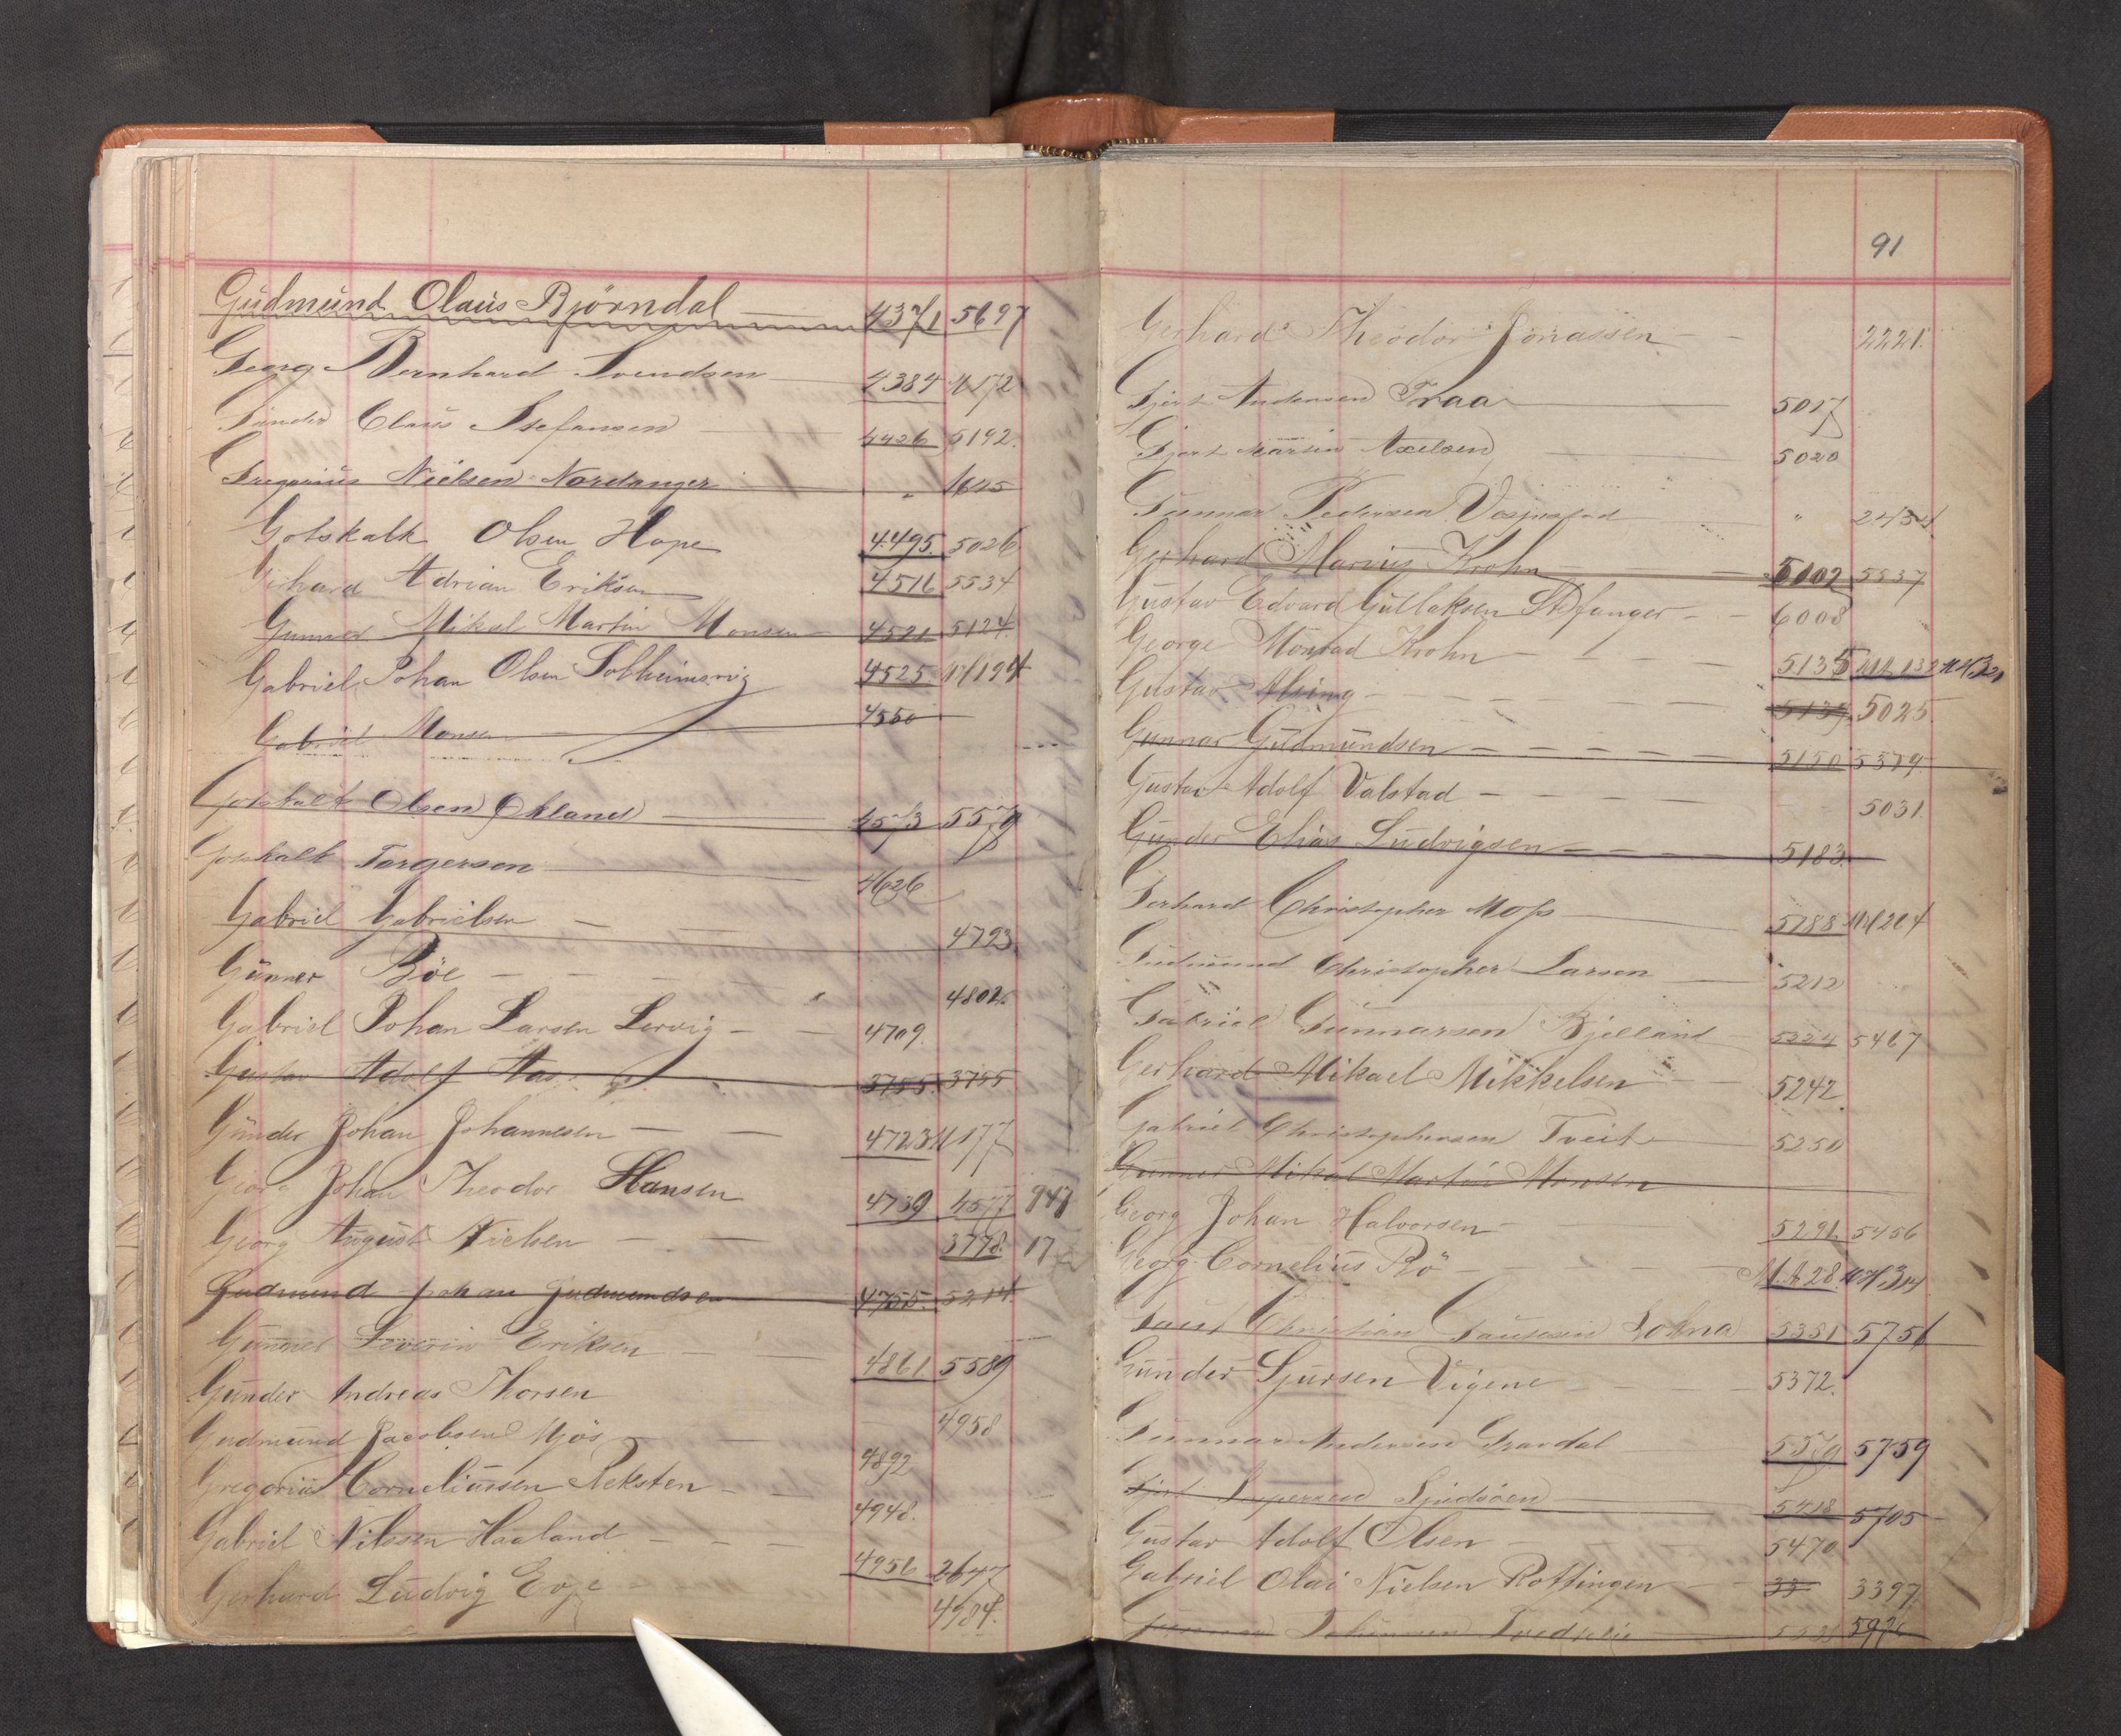 Gudmund Olaus Bjørndal 4371 5697
Georg Bernhard Svendsen 4384 M172
Gunder Claus Stefansen 4426 5192.
Gregorius Nielsen Nordanger " 1645
Gotskalk Olsen Hope 4495 5026
Gerhard Adrian Eriksen 4516 5534
Gunned Mikal Martin Monsen 4521 5124
Gabriel Johan Olsen Solheimsvig 4525
Gabriel Monsen 4550
Gotskalk Olsen Økland 4573 5579
Gotskalk Torgersen 4626
Gabriel Gabrielsen 4793.
Gunner Böe 4802.
Gabriel Johan Larsen Lervig 4709.
Gustav Adolf Aas 3755. 3755
Gunder Johan Johannesen 4723 M177
Georg Johan Theodor Hansen 4739 4577 947
Georg August Nielsen 3778. 17
Gudmund Johan Gudmundsen 4755. 5214.
Gunner Severin Eriksen 4861 5589
Gunder Andreas Thorsen 4958
Gudmund Jacobsen Mjös 4892
Gregorius Corneliussen Reksten 4948.
Gabriel Nilssen Haaland 4956 2647
Gerhard Ludvig Evje 4984.
91
Gerhard Theodor Jonassen 2221.
Gjert Andersen Traa 5017
Gjert Martin Axelsen 5020
Gunnar Pedersen " 2434
Gerhard Marius Krohn 5102 5537
Gustav Edvard Gullaksen 6008
George Monrad Krohn 5135
Gustav 5139. 5025.
Gunnar Gudmundsen 5150 5379
Gustav Adolf Valstad 5031.
Gunder Elias Ludvigsen 5183.
Gerhard Christopher Moss 5188 M204
Gudmund Christopher Larsen 5212
Gabriel Gunnarsen Bjelland 5224 5467
Gerhard Mikael Mikkelsen 5242.
Gabriel Christophersen Tveit 5250
Gunner Mikal Martin Monsen
Georg Johan Halvorsen 5291. 5456
Georg Cornelius Bö M.A 28.
Christian 5351 5756
Gunder Sjursen Vigene 5372.
Gunnar Andersen Gravdal 5379 5759
Gjert 5418 5705
Gustav Adolf Olsen 5470
Gabriel Olai Nielsen Rottingen 33 3397
Johannesen